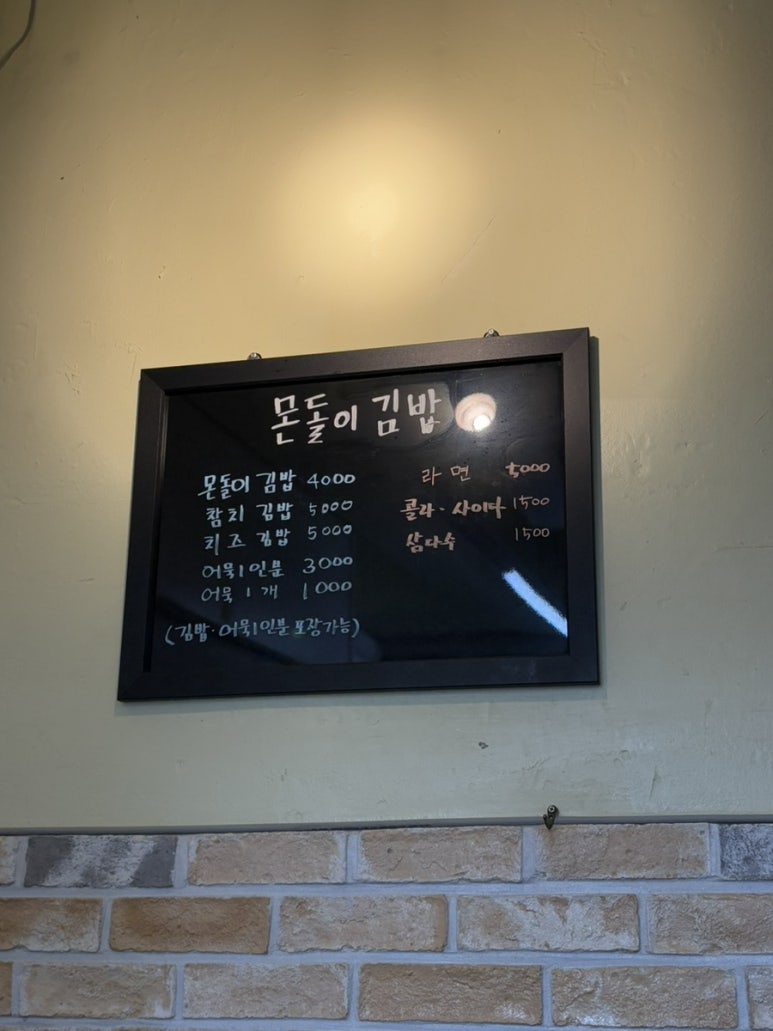 몬돌이 김밥
몬돌이 김밥 4000
참치 김밥 5000
치즈 김밥 5000
어묵 1인분 3000
어묵 1개 1000
(김밥·어묵 1인분 포장가능)
라면 5000
콜라·사이다 1500
삼다수 1500